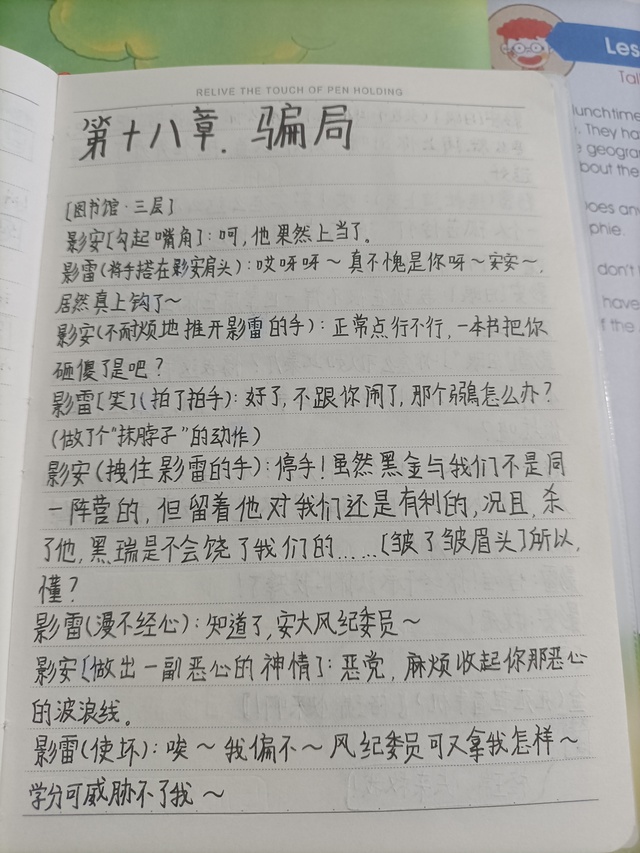 RELIVE THE TOUCH OF PEN HOLDING
第十八章. 骗局
[图书馆·三层]
影安[勾起嘴角]: 呵, 他果然上当了。
影雷(将手搭在影安肩头): 哎呀呀～真不愧是你呀～安安～,
居然真上钩了～
影安(不耐烦地推开影雷的手): 正常点行不行, 一本书把你
砸傻了是吧?
影雷[笑](拍了拍手): 好了, 不跟你闹了, 那个弱鸟怎么办?
(做了个"抹脖子"的动作)
影安(拽住影雷的手): 停手! 虽然黑金与我们不是同
一阵营的, 但留着他对我们还是有利的, 况且, 杀
了他, 黑瑞是不会饶了我们的......[皱了皱眉头]所以,
懂?
影雷(漫不经心): 知道了, 安大风纪委员～
影安[做出一副恶心的神情]: 恶党, 麻烦收起你那恶心
的波浪线。
影雷(使坏): 唉～我偏不～风纪委员可又拿我怎样～
学分可威胁不了我～
Les
Tal
lunchtime
. They ha
geogra
bout the
oes an
phie.
don't
have
f the